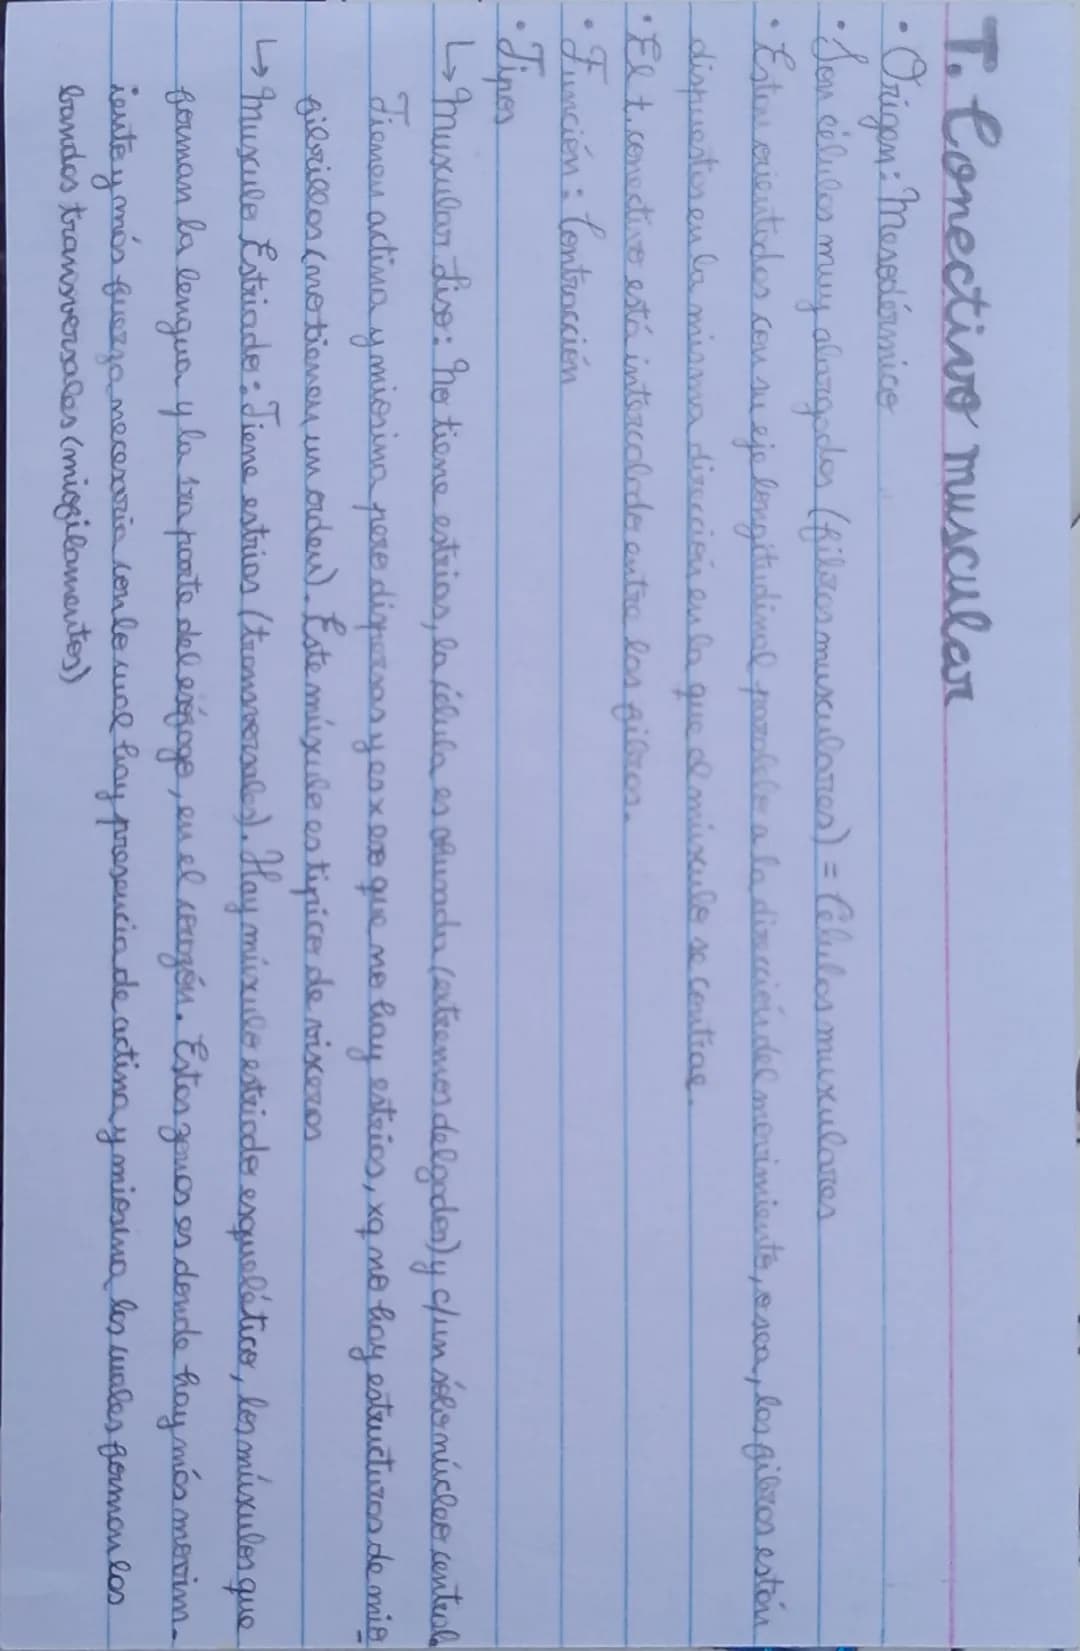 T. Conectivo muscular
• Origen: Mesodérmico
• Son células muy alargadas (fibras musculares) = Células musculares
• Estan orientadas con su eje longitudinal paralelo a la dirección del movimiento, osea, las fibras están
dispuestas en la misma dirección en la que el músculo se contrae.
• El t. conectivo está intercalado entre las fibras.
• Función: Contracción
• Tipos
↳ Muscular Liso: No tiene estrias, la célula es ahusada (extremos delgados) y c/un sólo núcleo central
Tienen actina y miosina pero dispersas y es x eso que no hay estrias, xq no hay estructuras de mio-
fibrillas (no tienen un orden). Este músculo es tipico de visceras
↳ Musculo Estriado: Tiene estrias (transversales). Hay músculo estriado esquelético, los músculos que
forman la lengua y la 1ra parte del esófago, en el corazón. Estas zonas es donde hay más movim-
iento y más fuerza necesaria con lo cual hay presencia de actina y miosina las cuales forman las
bandas transversales (miofilamentos)